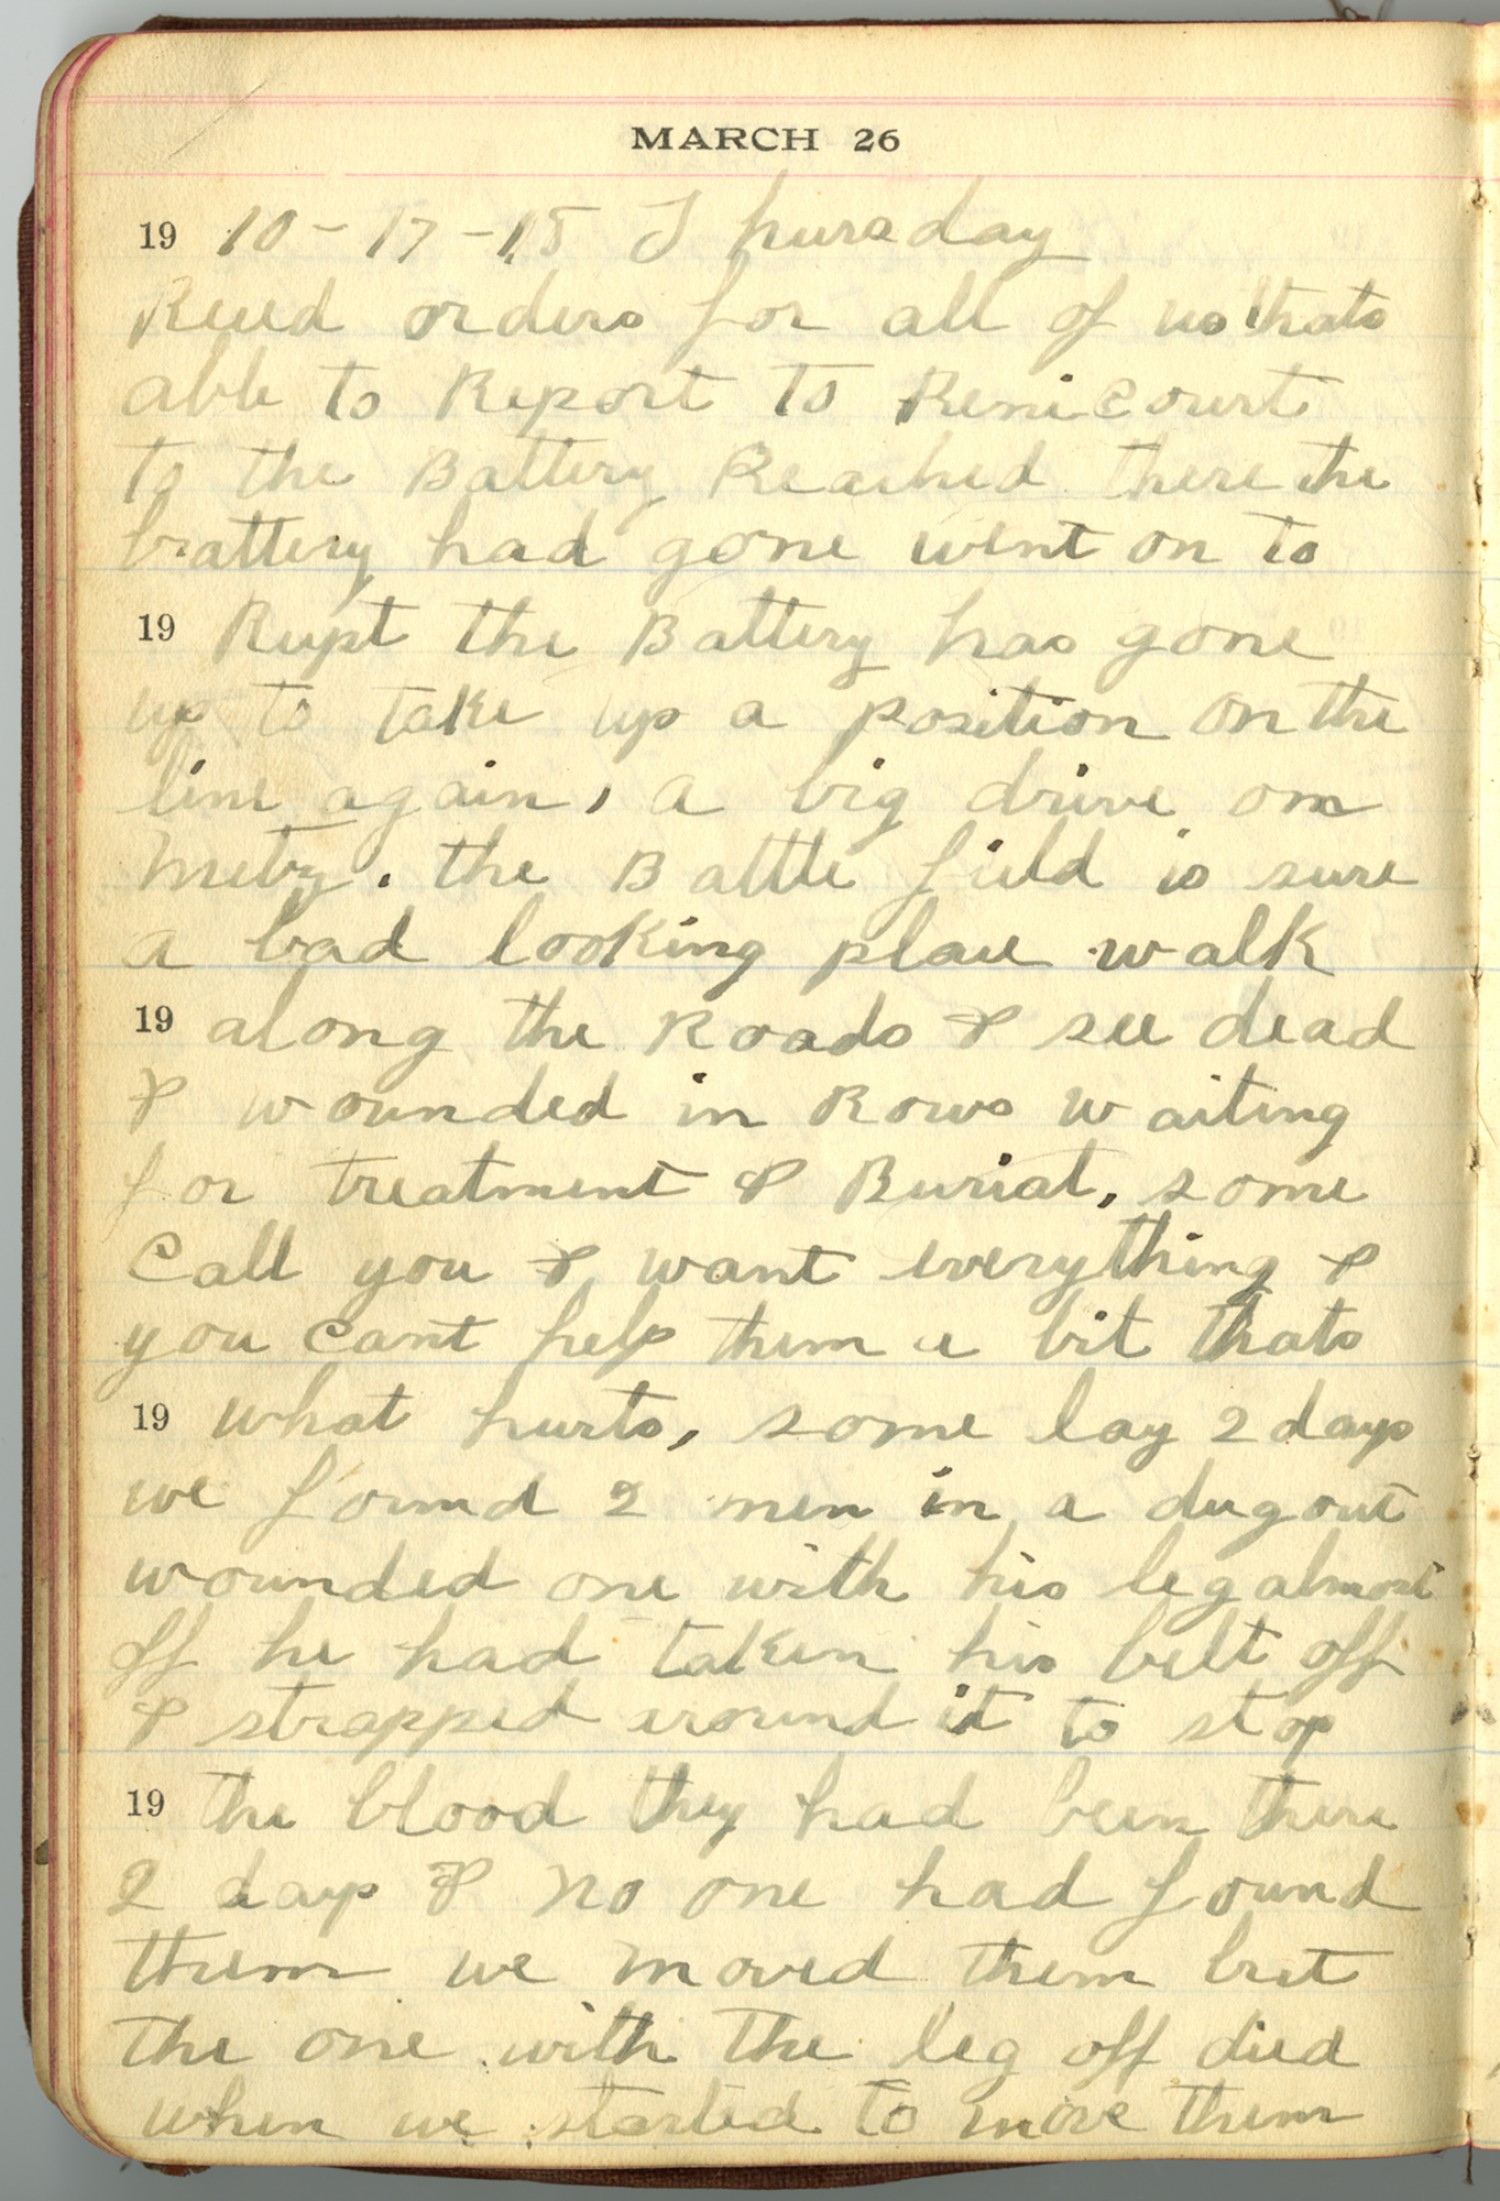 MARCH 26
19 10-17-18 Thursday
Reced orders for all of us thats
able to Report to Remicourt
to the Battery Reached there the
battery had gone went on to
19 Rupt the Battery has gone
up to take up a position on the
line again, a big drive on
Metz. the Battle field is sure
a bad looking place walk
19 along the Roads & see dead
& wounded in Rows waiting
for treatment & Burial, some
Call you & want everything &
you cant help them a bit thats
19 what hurts, some lay 2 days
we found 2 men in a dugout
wounded one with his leg almost
off he had taken his belt off
& strapped around it to stop
19 the blood they had been there
2 days & no one had found
them we moved them but
the one with the leg off died
when we started to move them